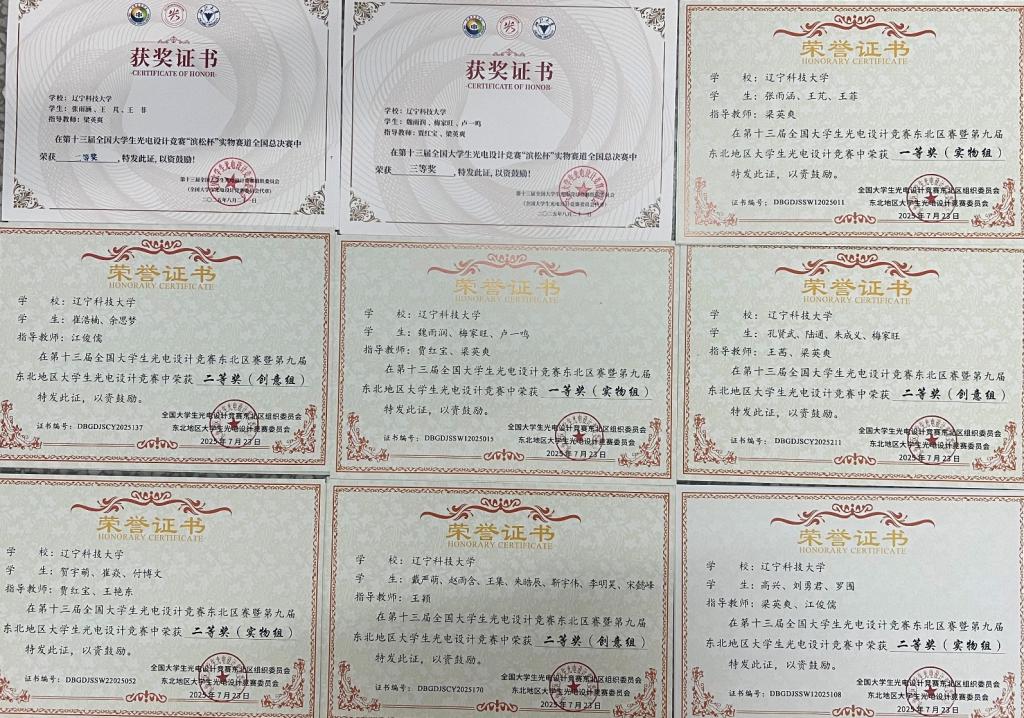 获奖证书
·CERTIFICATE OF HONOR·
学校：辽宁科技大学
学生：张雨涵、王 芃、王 菲
指导教师：梁英爽
在第十三届全国大学生光电设计竞赛“滨松杯”实物赛道全国总决赛中
荣获 二等奖 ，特发此证，以资鼓励！
第十三届全国大学生光电设计竞赛组织委员会
（全国大学生光电设计竞赛委员会代章）
获奖证书
·CERTIFICATE OF HONOR·
学校：辽宁科技大学
学生：魏雨润、梅家旺、卢一鸣
指导教师：贾红宝、梁英爽
在第十三届全国大学生光电设计竞赛“滨松杯”实物赛道全国总决赛中
荣获 三等奖 ，特发此证，以资鼓励！
第十三届全国大学生光电设计竞赛组织委员会
（全国大学生光电设计竞赛委员会代章）
荣誉证书
HONORARY CERTIFICATE
学 校：辽宁科技大学
学 生：张雨涵、王芃、王菲
指导教师：梁英爽
在第十三届全国大学生光电设计竞赛东北区赛暨第九届
东北地区大学生光电设计竞赛中荣获 一等奖（实物组）
特发此证，以资鼓励。
全国大学生光电设计竞赛东北区组织委员会
东北地区大学生光电设计竞赛委员会
证书编号：DBGDJSSW12025011
2025年7月23日
荣誉证书
HONORARY CERTIFICATE
学 校：辽宁科技大学
学 生：崔浩楠、余思梦
指导教师：江俊儒
在第十三届全国大学生光电设计竞赛东北区赛暨第九届
东北地区大学生光电设计竞赛中荣获 二等奖（创意组）
特发此证，以资鼓励。
全国大学生光电设计竞赛东北区组织委员会
证书编号：DBGDJSCY2025137 东北地区大学生光电设计竞赛委员会
2025年7月23日
荣誉证书
HONORARY CERTIFICATE
学 校：辽宁科技大学
学 生：魏雨润、梅家旺、卢一鸣
指导教师：贾红宝、梁英爽
在第十三届全国大学生光电设计竞赛东北区赛暨第九届
东北地区大学生光电设计竞赛中荣获 一等奖（实物组）
特发此证，以资鼓励。
全国大学生光电设计竞赛东北区组织委员会
证书编号：DBGDJSSW12025015 东北地区大学生光电设计竞赛委员会
2025年7月23日
荣誉证书
HONORARY CERTIFICATE
学 校：辽宁科技大学
学 生：孔贤武、陆通、朱成义、梅家旺
指导教师：王茜、梁英爽
在第十三届全国大学生光电设计竞赛东北区赛暨第九届
东北地区大学生光电设计竞赛中荣获 二等奖（创意组）
特发此证，以资鼓励。
全国大学生光电设计竞赛东北区组织委员会
证书编号：DBGDJSCY2025211 东北地区大学生光电设计竞赛委员会
2025年7月23日
荣誉证书
HONORARY CERTIFICATE
学 校：辽宁科技大学
学 生：贺宇萌、崔焱、付博文
指导教师：贾红宝、王艳东
在第十三届全国大学生光电设计竞赛东北区赛暨第九届
东北地区大学生光电设计竞赛中荣获 二等奖（实物组）
特发此证，以资鼓励。
全国大学生光电设计竞赛东北区组织委员会
证书编号：DBGDJSSW22025052 东北地区大学生光电设计竞赛委员会
2025年7月23日
荣誉证书
HONORARY CERTIFICATE
学 校：辽宁科技大学
学 生：戴严萌、赵雨含、王集、朱皓辰、靳宇伟、李明昊、宋懿峰
指导教师：王颖
在第十三届全国大学生光电设计竞赛东北区赛暨第九届
东北地区大学生光电设计竞赛中荣获 二等奖（创意组）
特发此证，以资鼓励。
全国大学生光电设计竞赛东北区组织委员会
证书编号：DBGDJSCY2025170 东北地区大学生光电设计竞赛委员会
2025年7月23日
荣誉证书
HONORARY CERTIFICATE
学 校：辽宁科技大学
学 生：高兴、刘勇君、罗围
指导教师：梁英爽、江俊儒
在第十三届全国大学生光电设计竞赛东北区赛暨第九届
东北地区大学生光电设计竞赛中荣获 二等奖（实物组）
特发此证，以资鼓励。
全国大学生光电设计竞赛东北区组织委员会
证书编号：DBGDJSSW12025108 东北地区大学生光电设计竞赛委员会
2025年7月23日